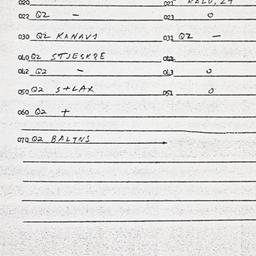 020 021 KALV, 27
022 Q2 - 023 0
030 Q2 KANAVS 031 Q2 -
040 Q2 STJESKPE
042 Q2 - 043 0
050 Q2 S+LAX 051 0
060 Q2 +
070 Q2 BALTNS